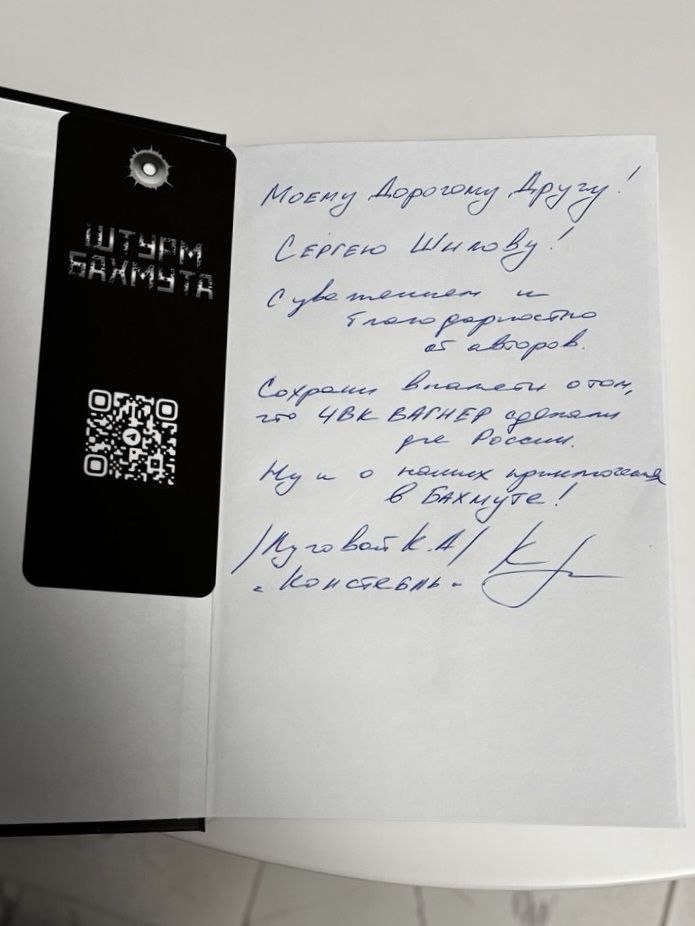 ШТУРМ
БАХМУТА
Моему Дорогому Другу!
Сергею Шилову!
С уважением и
благодарностью
от авторов.
Сохрани в памяти о том,
что ЧВК ВАГНЕР сделали
для России.
Ну и о наших приключениях
в БАХМУТЕ!
/Луговой К.А/
"Констебль"